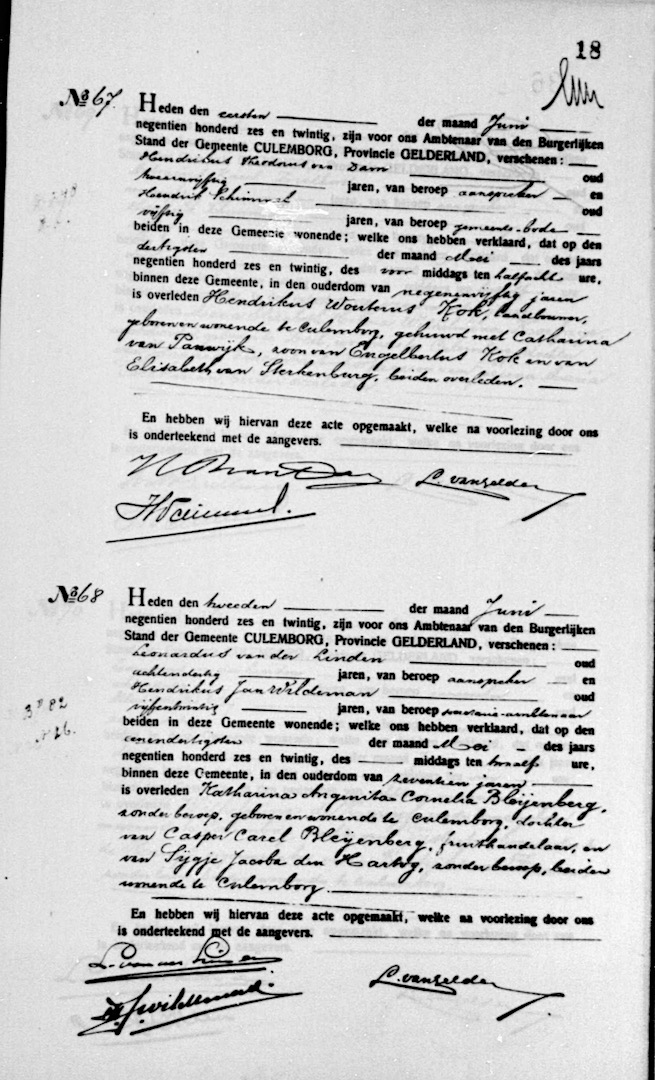 18
No 67.
Heden den eersten der maand Juni
negentien honderd zes en twintig, zijn voor ons Ambtenaar van den Burgerlijken
Stand der Gemeente CULEMBORG, Provincie GELDERLAND, verschenen:
Hendrikus Theodorus van Dam oud
jaren, van beroep aanspreker en
Hendrik Schimmel oud
vijftig jaren, van beroep gemeente-bode
beiden in deze Gemeente wonende; welke ons hebben verklaard, dat op den
dertigsten der maand Mei des jaars
negentien honderd zes en twintig, des voor middags ten half acht ure,
binnen deze Gemeente, in den ouderdom van negenenvijftig jaren
is overleden Hendrikus Wouterus Kok, landbouwer,
geboren en wonende te Culemborg, gehuwd met Catharina
van Panwijk, zoon van Engelbertus Kok en van
Elisabeth van Sterkenburg, beiden overleden.
En hebben wij hiervan deze acte opgemaakt, welke na voorlezing door ons
is onderteekend met de aangevers.
L. van Gelder
HSchimmel.
No 68
Heden den tweeden der maand Juni
negentien honderd zes en twintig, zijn voor ons Ambtenaar van den Burgerlijken
Stand der Gemeente CULEMBORG, Provincie GELDERLAND, verschenen:
Leonardus van der Linden oud
achtendertig jaren, van beroep aanspreker en
Hendrikus Jan Wildeman oud
vijfentwintig jaren, van beroep secretarie-ambtenaar
beiden in deze Gemeente wonende; welke ons hebben verklaard, dat op den
eenendertigsten der maand Mei des jaars
negentien honderd zes en twintig, des middags ten twaalf ure,
binnen deze Gemeente, in den ouderdom van zeventien jaren
is overleden Katharina Angenita Cornelia Bleijenberg,
zonder beroep, geboren en wonende te Culemborg, dochter
van Casper Carel Bleijenberg, fruithandelaar, en
van Sijgje Jacoba den Hartog, zonder beroep, beiden
wonende te Culemborg.
En hebben wij hiervan deze acte opgemaakt, welke na voorlezing door ons
is onderteekend met de aangevers.
L. van der Linden
L. van Gelder
HJWildeman.